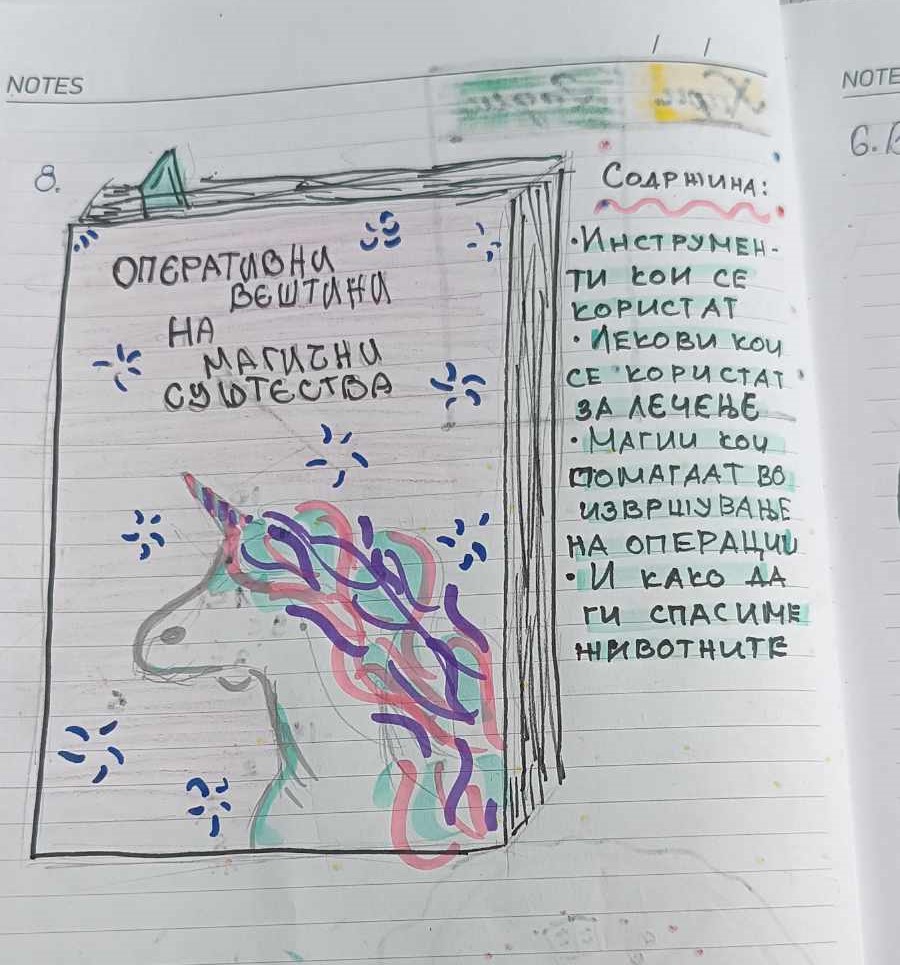 NOTES
NOTE
8.
ОПЕРАТИВНИ
ВЕШТИНИ
НА
МАГИЧНИ
СУШТЕСТВА
СОДРЖИНА:
·ИНСТРУМЕН-
ТИ КОИ СЕ
КОРИСТАТ
·ЛЕКОВИ КОИ
СЕ КОРИСТАТ
ЗА ЛЕЧЕЊЕ
·МАГИИ КОИ
ПОМАГААТ ВО
ИЗВРШУВАЊЕ
НА ОПЕРАЦИИ
·И КАКО ДА
ГИ СПАСИМЕ
ЖИВОТНИТЕ
6.